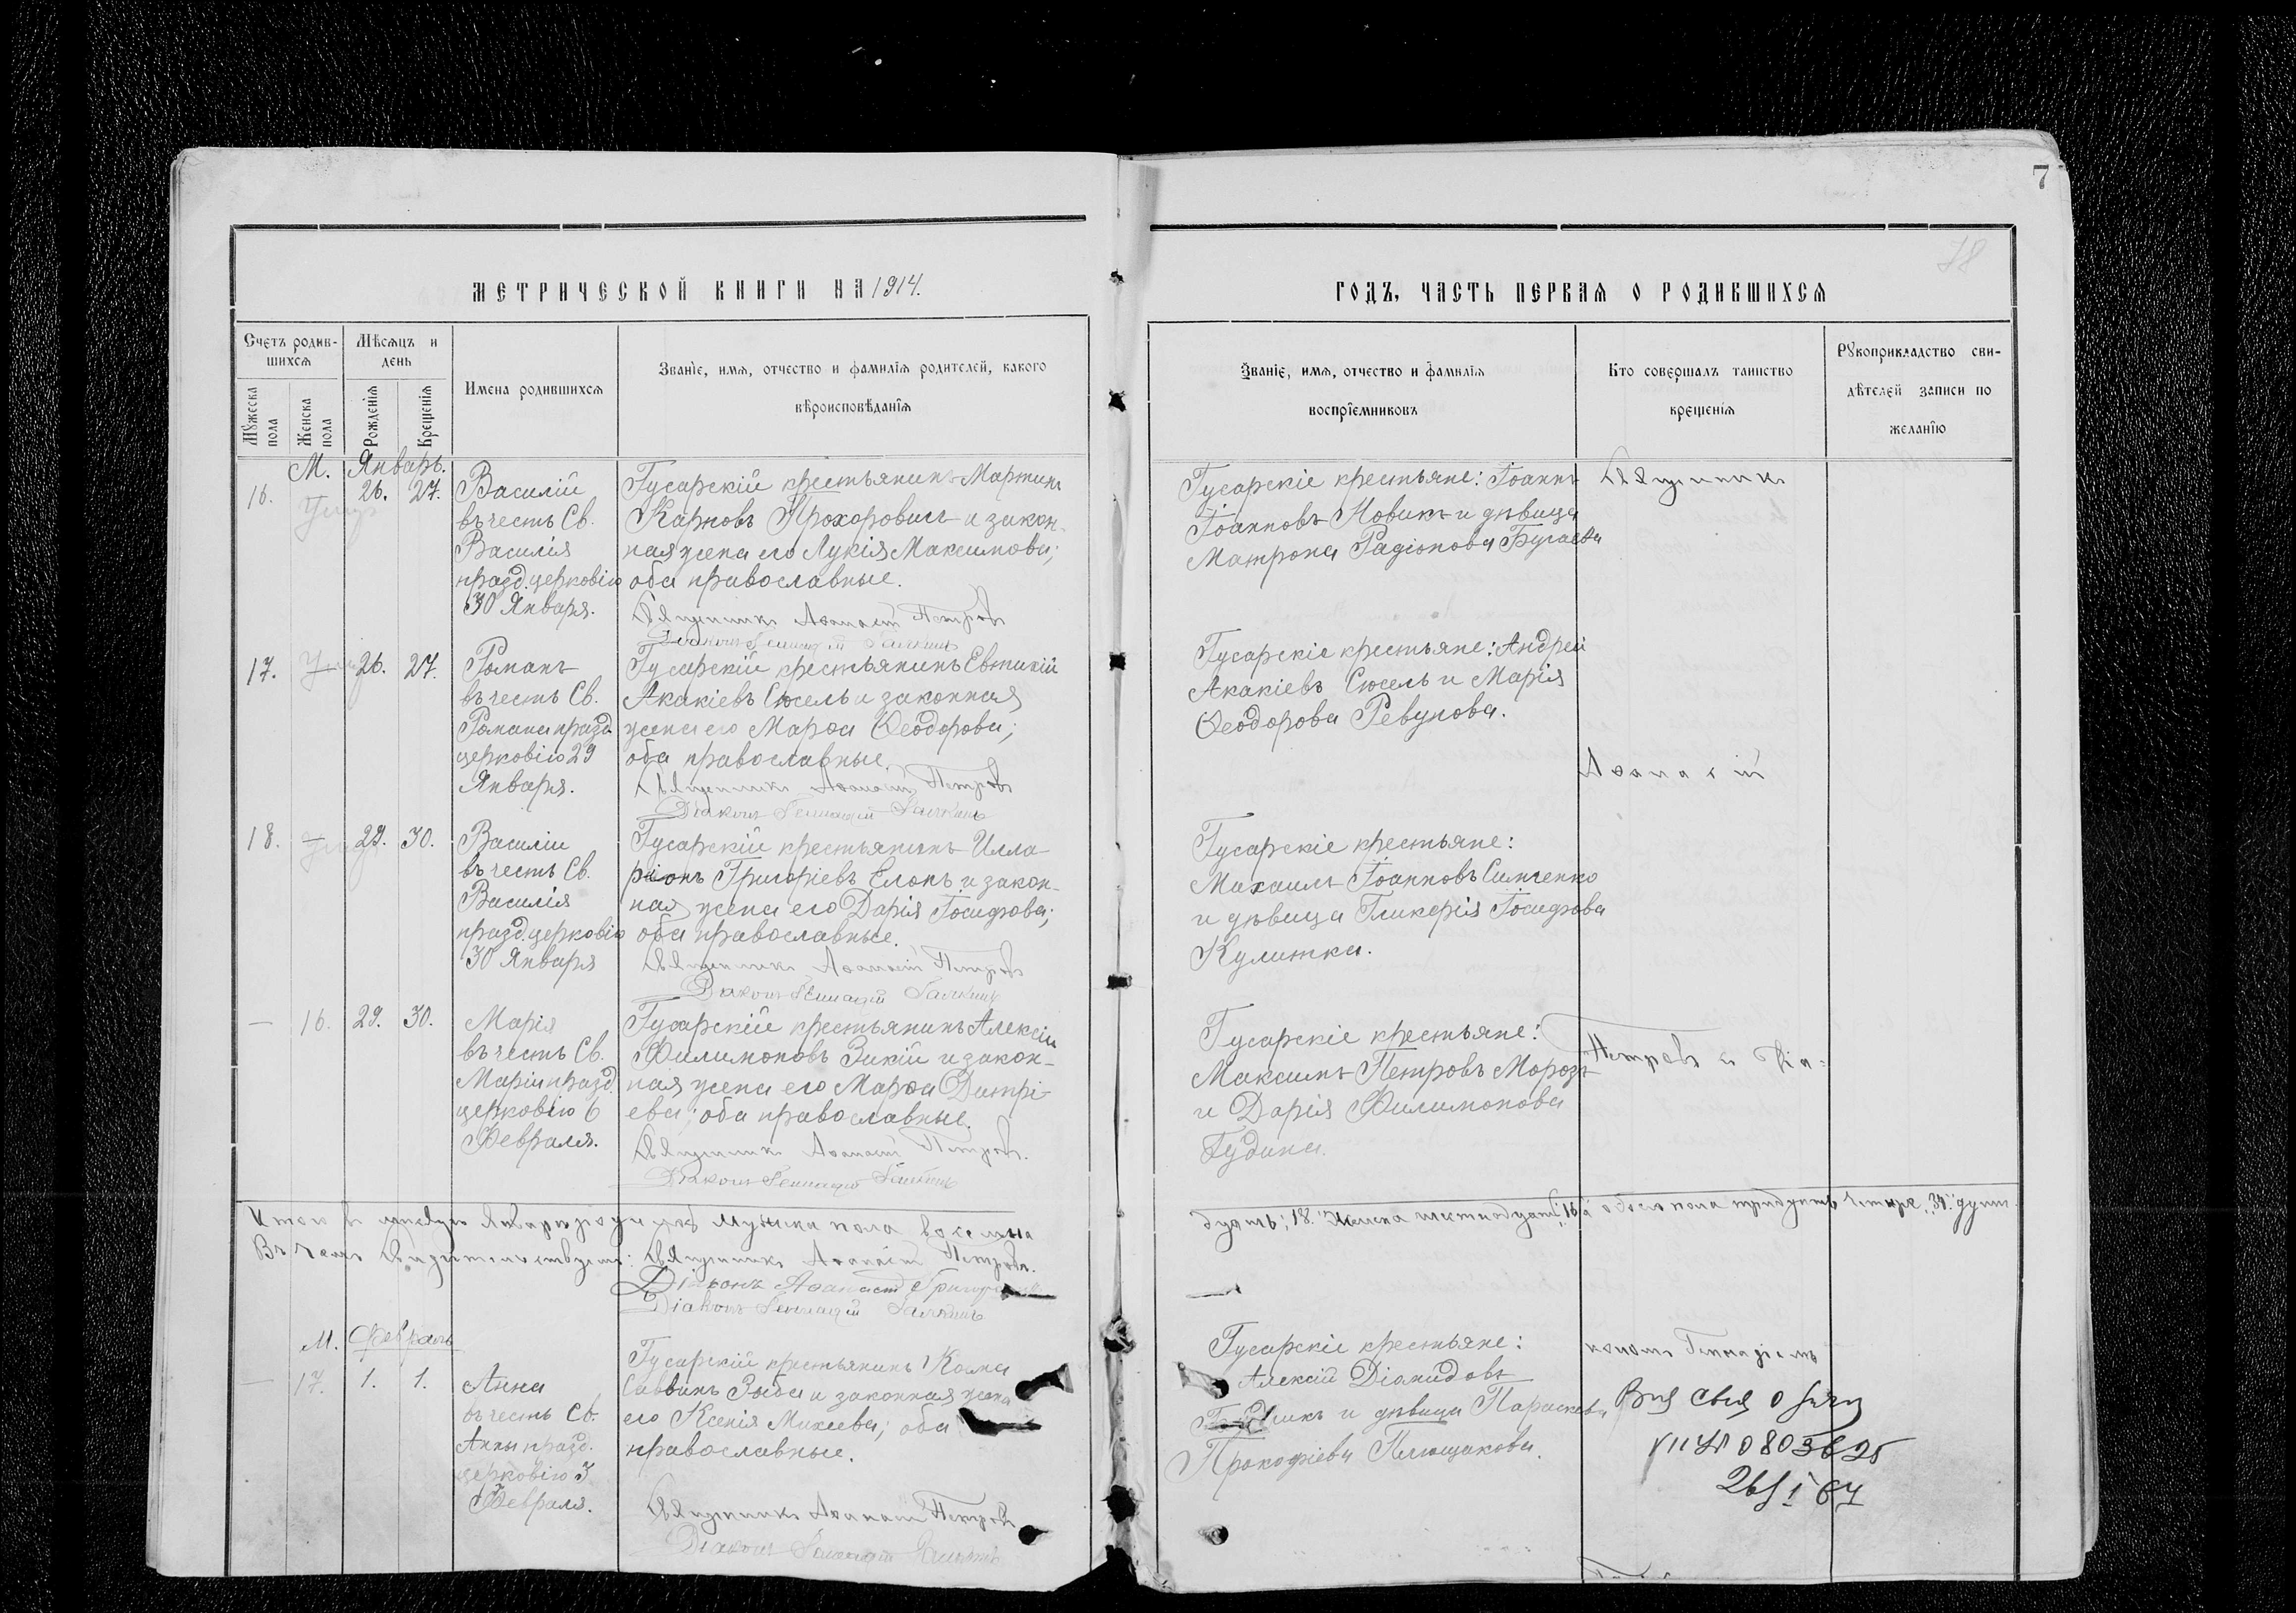 7
78
МЕТРИЧЕСКОЙ КНИГИ НА 1914.
Счетъ родив-
шихся
Мѣсяцъ и
день
Имена родившихся
Званіе, имя, отчество и фамилія родителей, какого
вѣроисповѣданія
Мужеска
пола
Женска
пола
Рожденія
Крещенія
М. Январь.
16. 26. 27. Василій
въ честь Св.
Василія
празд. церковію
30 Января.
Гусарскій крестьянинъ Мартинъ
Карповъ Прохоровичъ и закон-
ная жена его Лукія Максимова;
оба православные.
Священникъ Аѳанасій Петровъ
Діаконъ Геннадій Галкинъ
17. 26. 27. Романъ
въ честь Св.
Романа празд.
церковію 29
Января.
Гусарскій крестьянинъ Евтихій
Акакіевъ Сюсель и законная
жена его Марѳа Ѳеодорова;
оба православные.
Священникъ Аѳанасій Петровъ
Діаконъ Геннадій Галкинъ
18. 29. 30. Василій
въ честь Св.
Василія
празд. церковію
30 Января
Гусарскій крестьянинъ Илла-
ріонъ Григоріевъ Елонъ и закон-
ная жена его Дарія Іосифова;
оба православные.
Священникъ Аѳанасій Петровъ
Діаконъ Геннадій Галкинъ
— 16. 29. 30. Марія
въ честь Св.
Маріи празд.
церковію 6
Февраля.
Гусарскій крестьянинъ Алексій
Филимоновъ Зикій и закон-
ная жена его Марѳа Димтрі-
ева; оба православные.
Священникъ Аѳанасій Петровъ.
Діаконъ Геннадій Галкинъ
Итого въ мѣсяцѣ Январѣ мужска пола восемна
Въ чемъ свидѣтельствуемъ: Священникъ Аѳанасій Петровъ.
Діаконъ Аѳанасій
Діаконъ Геннадій Галкинъ
М. Февраль
— 17. 1. 1. Анна
въ честь Св.
Анны празд.
церковію 3
Февраля.
Гусарскій крестьянинъ Косма
Саввинъ Зыба и законная жена
его Ксенія Михеева; оба
православные.
Священникъ Аѳанасій Петровъ
Діаконъ Геннадій Галкинъ
ГОДЪ, ЧАСТЬ ПЕРВАЯ О РОДИВШИХСЯ
Званіе, имя, отчество и фамилія
воспріемниковъ
Кто совершалъ таинство
крещенія
Рукоприкладство сви-
дѣтелей записи по
желанію
Гусарскіе крестьяне: Іоаннъ
Іоанновъ Новикъ и дѣвица
Матрона Радіонова Бугаева
Священникъ
Гусарскіе крестьяне: Андрей
Акакіевъ Сюсель и Марія
Ѳеодорова Ревунова.
Аѳанасій
Гусарскіе крестьяне:
Михаилъ Іоанновъ Симченко
и дѣвица Гликерія Іосифова
Кулитка.
Гусарскіе крестьяне:
Максимъ Петровъ Морозъ
и Дарія Филимонова
Гудина.
Петровъ съ Діа-
дцать; 18. Женска шестнадцать, 16, а обоего пола тридцать четыре, 34, душ.
Гусарскіе крестьяне:
Алексій Діанидовъ
и дѣвица Параскева
Прокофіева Плющакова.
кономъ Геннадіемъ